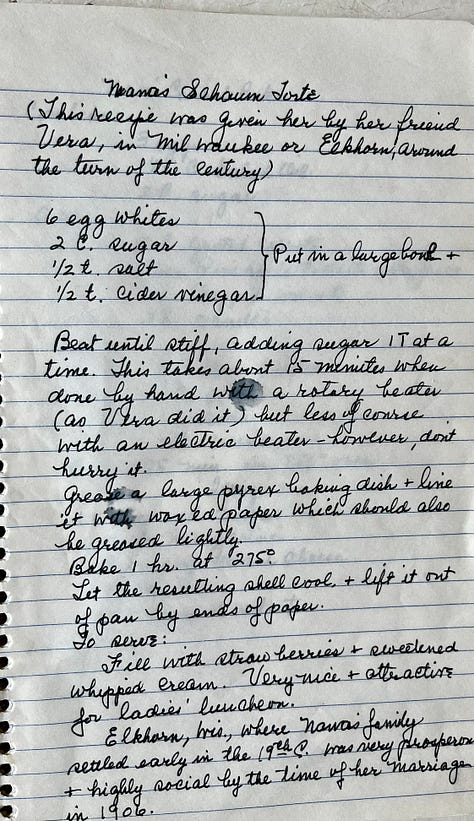 Nana's Schaum Torte
(This recipe was given her by her friend
Vera, in Milwaukee or Elkhorn, around
the turn of the century)
6 egg whites
2 C. sugar
1/2 t. salt
1/2 t. cider vinegar
Put in a large bowl +
Beat until stiff, adding sugar 1T at a
time. This takes about 15 minutes when
done by hand with a rotary beater
(as Vera did it) but less of course
with an electric beater - however, don't
hurry it.
Grease a large pyrex baking dish + line
it with waxed paper which should also
be greased lightly.
Bake 1 hr. at 275°
Let the resulting shell cool, + lift it out
of pan by ends of paper.
To serve:
Fill with strawberries + sweetened
whipped cream. Very nice + attractive
for ladies' luncheon.
Elkhorn, Wis., where Nana's family
settled early in the 19th C. was very prosperous
+ highly social by the time of her marriage
in 1906.